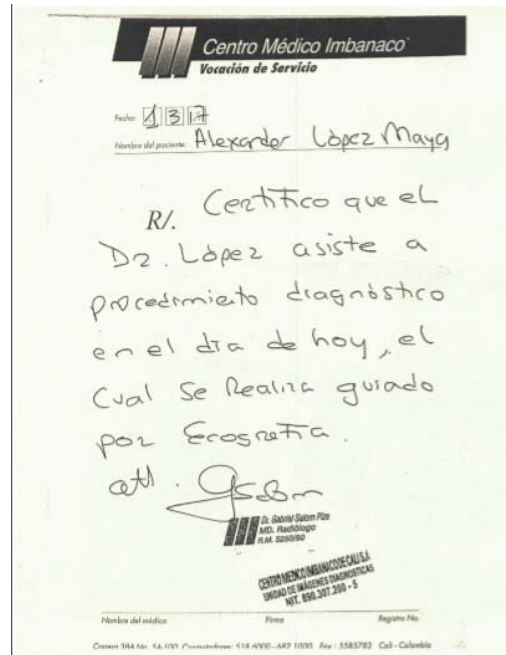 Centro Médico Imbanaco
Vocación de Servicio
Fecha: 1 3 17
Nombre del paciente: Alexander López Maya
R/. Certifico que el
Dr. López asiste a
procedimiento diagnóstico
en el día de hoy, el
Cual Se Realiza guiado
por Ecografía.
att.
Dr. Gabriel Salom Pizo
MD. Radiólogo
R.M. 5250/90
CENTRO MEDICO IMBANACO DE CALI S.A
UNIDAD DE IMÁGENES DIAGNOSTICAS
NIT. 890.307.200 - 5
Nombre del médico Firma Registro No.
Carrera 38A No. 5A-100 Conmutadores: 518 6000 - 682 1000 Fax: 5585783 Cali - Colombia